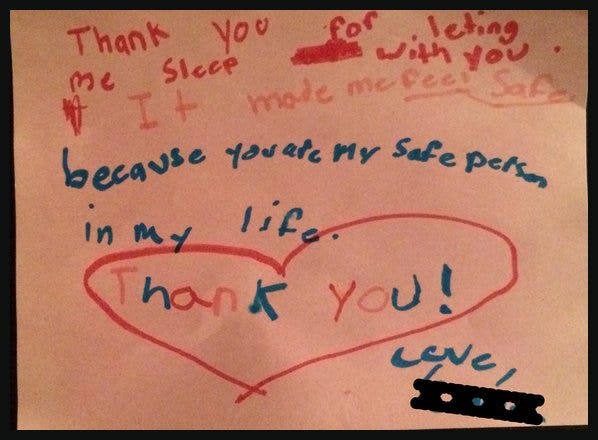 Thank you for leting
me sleep with you.
It made me feel safe
because you are my safe person
in my life.
Thank you!
Love,